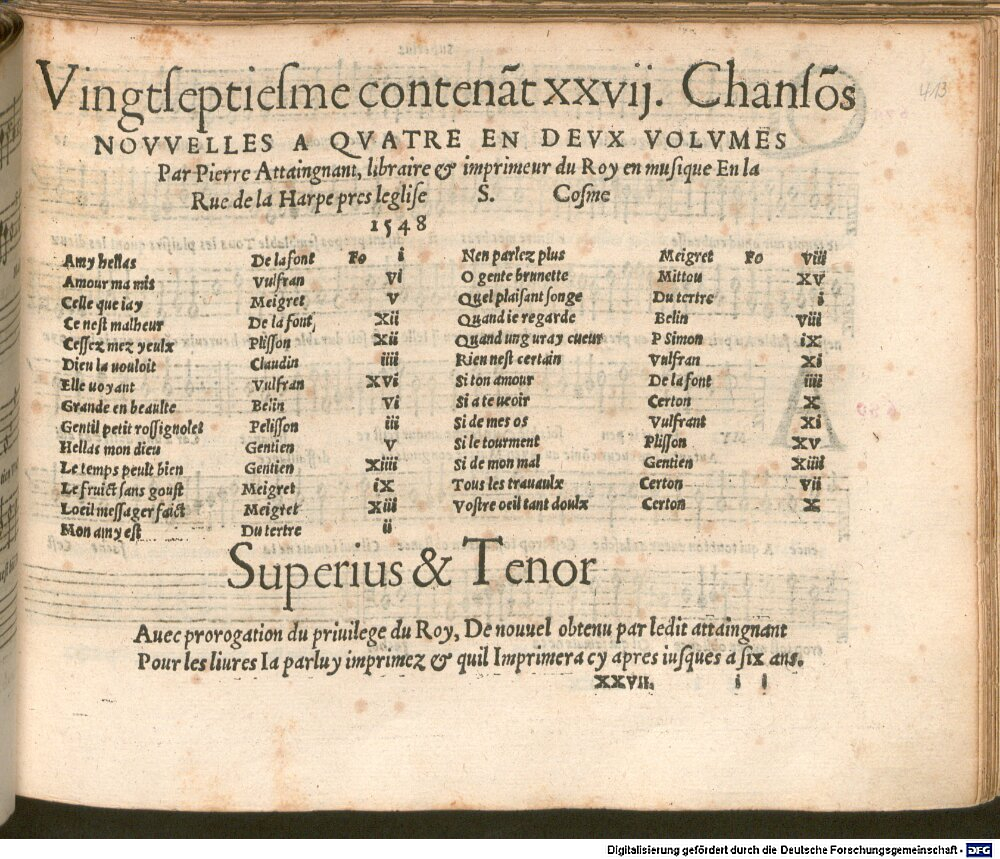 Vingtſeptieſme contenãt xxvij. Chanſõs
NOVVELLES A QVATRE EN DEVX VOLVMES
Par Pierre Attaingnant, libraire & imprimeur du Roy en muſique En la
Rue de la Harpe pres legliſe S. Coſme
1548
Amy hellas De lafont Fo i
Amour ma mis Vulfran vi
Celle que iay Meigret v
Ce neſt malheur De la font, xii
Ceſſez mez yeulx Pliſſon xii
Dieu la vouloit Claudin iiii
Elle uoyant Vulfran xvi
Grande en beaulte Belin vi
Gentil petit roſſignolet Peliſſon iii
Hellas mon dieu Gentien v
Le temps peult bien Gentien xiiii
Le fruict ſans gouſt Meigret ix
Loeil meſſager faict Meigret xiii
Mon amy eſt Du tertre ii
Nen parlez plus Meigret Fo viii
O gente brunette Mittou xv
Quel plaiſant ſonge Du tertre i
Quand ie regarde Belin viii
Quand ung uray cueur P Simon ix
Rien neſt certain Vulfran xi
Si ton amour De la font iiii
Si a te ueoir Certon x
Si de mes os Vulfrant xi
Si le tourment Pliſſon xv
Si de mon mal Gentien xiiii
Tous les trauaulx Certon vii
Voſtre oeil tant doulx Certon x
Superius & Tenor
Auec prorogation du priuilege du Roy, De nouuel obtenu par ledit attaingnant
Pour les liures Ia par luy imprimez & quil Imprimera cy apres iuſques a ſix ans.
XXVII. i i
413
Digitalisierung gefördert durch die Deutsche Forschungsgemeinschaft - DFG